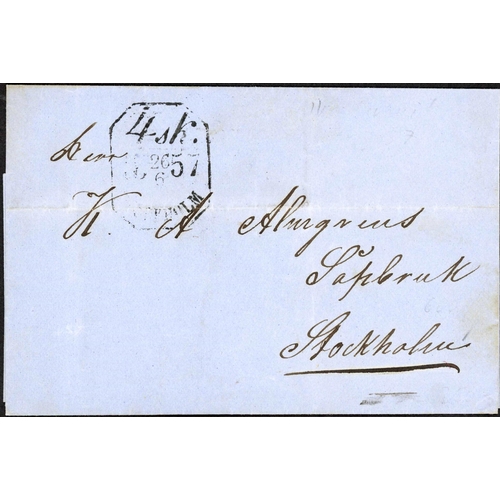 4 sk.
26 57
6
STOCKHOLM
Herr
K A Almgrens
Såpbruk
Stockholm